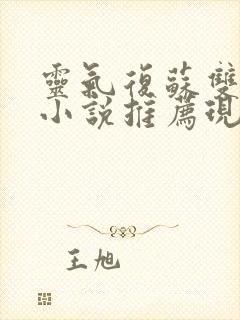 靈氣復蘇雙
小說推薦現
王旭